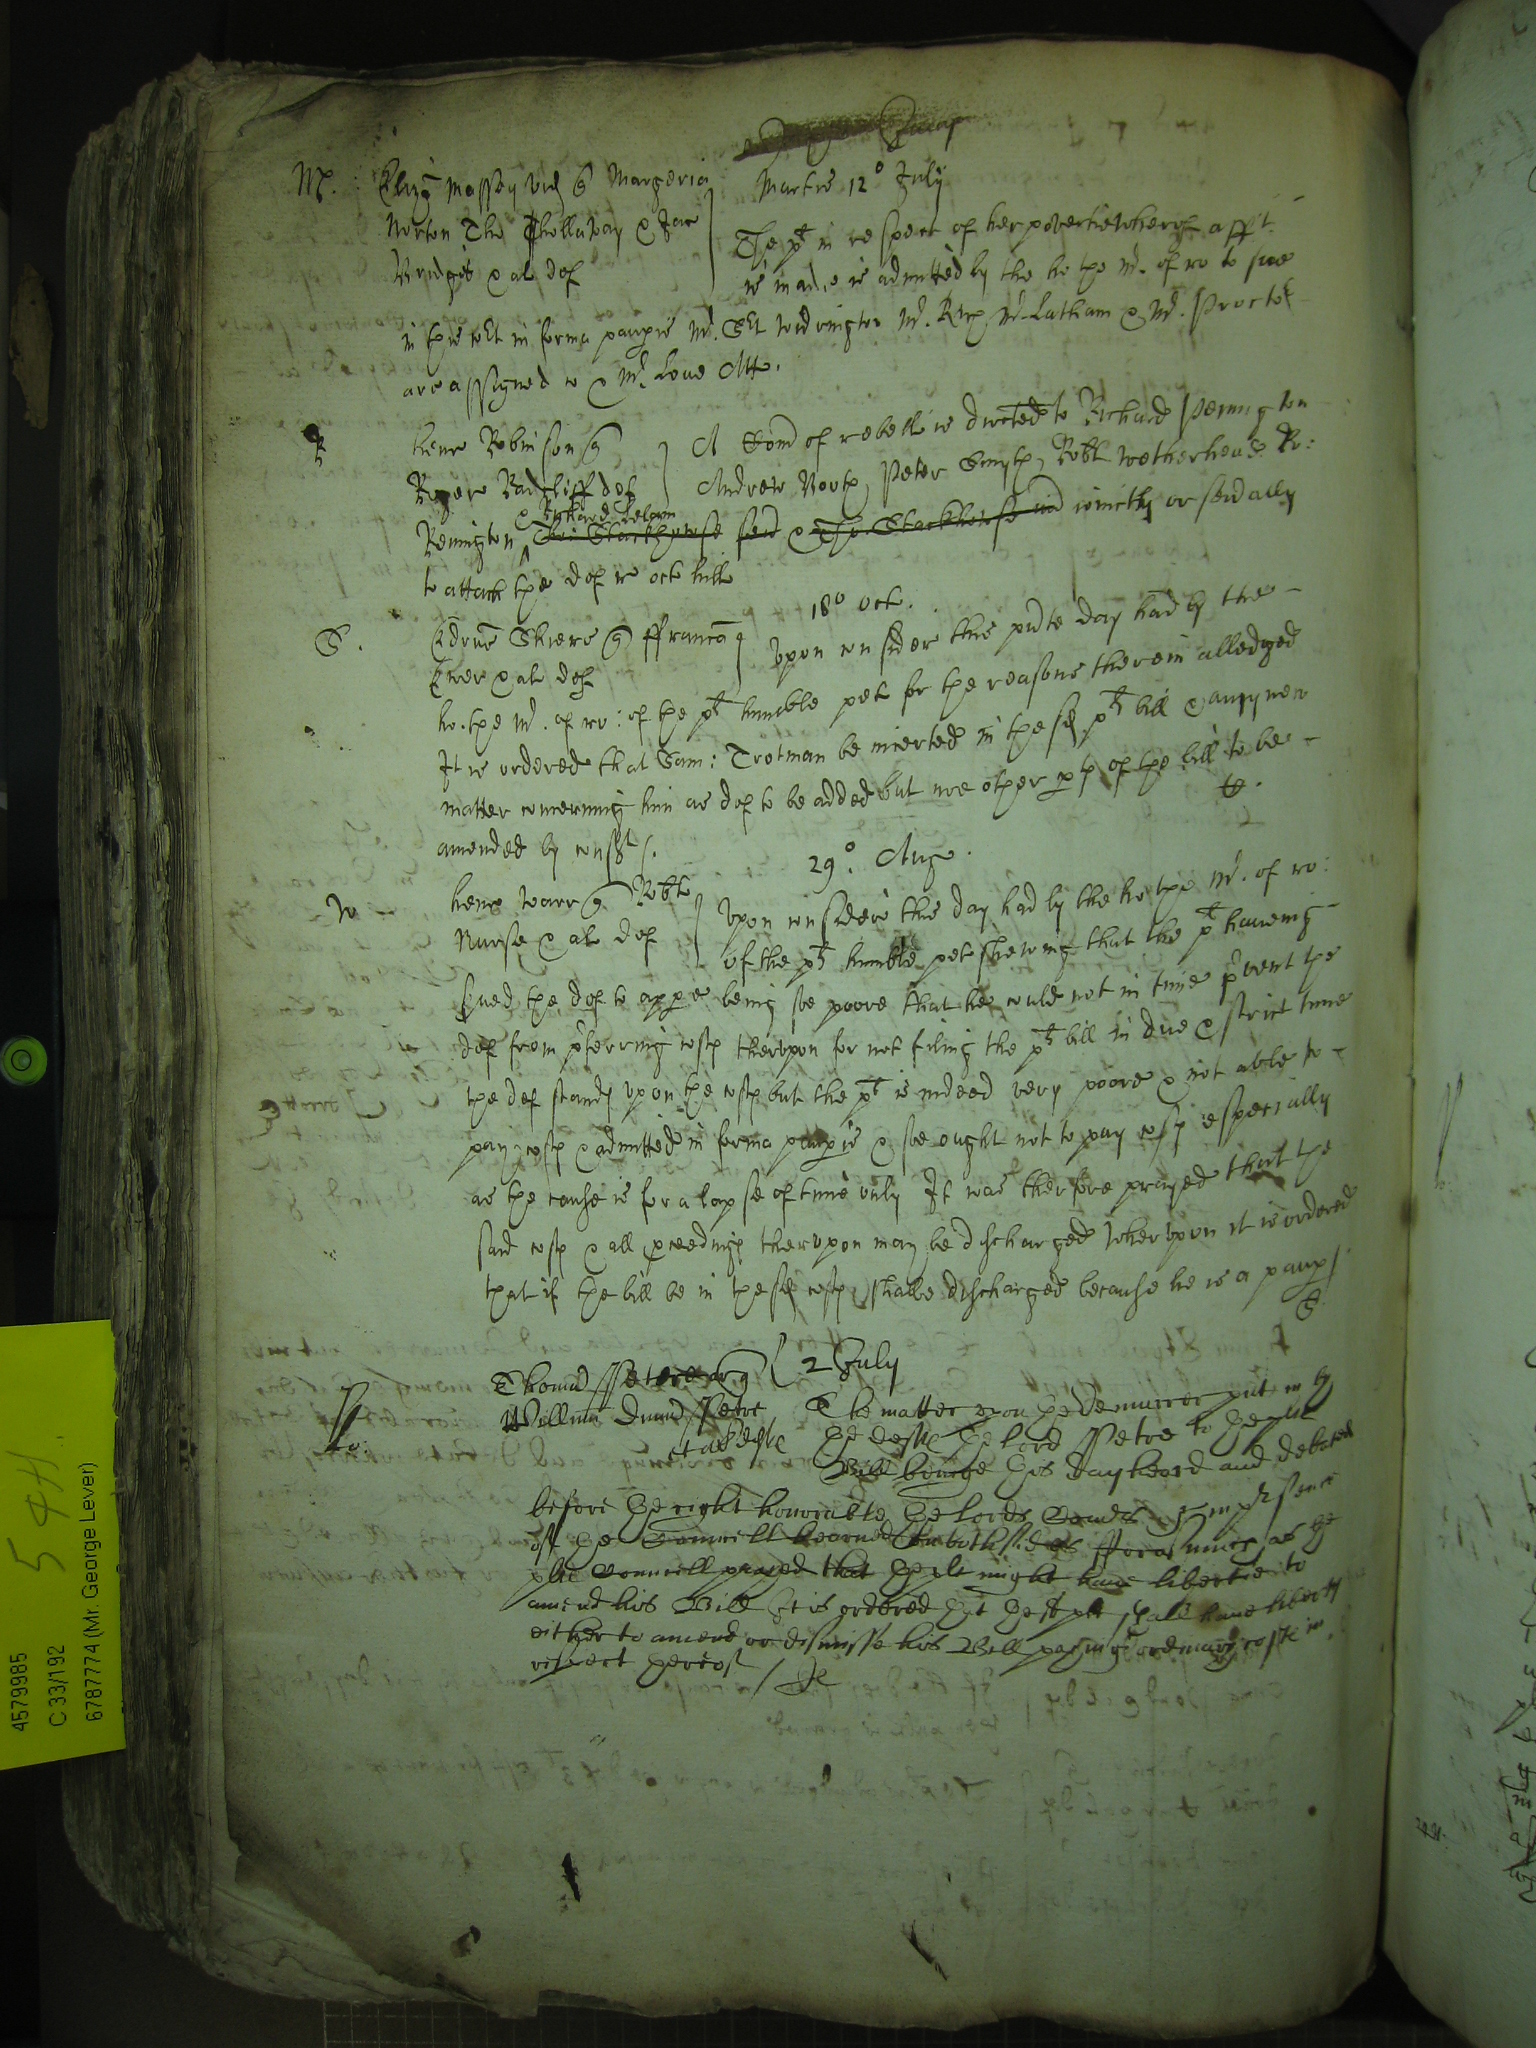 M. Eliz Massey vid q Margeria Martis 12o July
Norton Tho Hollaway & Jac
Bridges & al def
The plt in respect of her povertie wherof afft
is made is admitted by the ho the Mr. of ro to sue
in this Cot in forma paupis Mr. Set Widrington Mr. King Mr. Latham & Mr. Procter
are assigned co & Mr. Love Att.
R Henr Robinson q
Roger Radcliff def
A Com of rebell is directed to Richard Penington
Andrew North, Peter Smyth, Robt Wetherhead Ro:
& Richard
Remington Stackhowse & Tho Stackhowse iointly or sevally
to attach the def re oct hill
18o Oct.
S. Skiers q ffrancu
& al def
Upon consider this pnte day had by the
ho. the Mr. of ro: of the plt humble pet for the reasons therein alledged
It is ordered that Sam: Trotman be incerted in the sd plt bill & any new
matter concerning him as def to be added but noe other pt of the bill to be
amended by const
29o. Aug.
W Henr Warr q Robte
Nurse & al def
Upon consider this day had by the ho the Mr. of ro:
of the plt humble pet shewing that the plt haveing
sued the def to appe being soe poore that he could not in time pvent the
def from pferring costs therupon for not filing the plt bill in due & strict time
the def stands upon the costs but the plt is indeed very poore & not able to
pay costs & admitted in forma paupis & soe ought not to pay costs especially
as the cause is for a lapse of time only It was therefore prayed that the
said costs & all pceedings therupon may be discharged Wherupon it is ordered
that if the bill be in the sd costs shalbe discharged because he is a paup
S
2 July
Thomas q
Willm Petre
et als
The matter upon the demurrer put in by
the the lord Petre to the plt
Bill being this day heard and debated
before the right honorable the lords in presence
of the Councell learned on both sides fforasmuch as the
plt Councell prayed that the plt might have libertie to
amend his Bill It is ordered that the sd plt shall have liberty
either to amend or dismisse his Bill paying ordinary costs in
respect thereof
4579985
C 33/192
6787774 (Mr. George Lever)